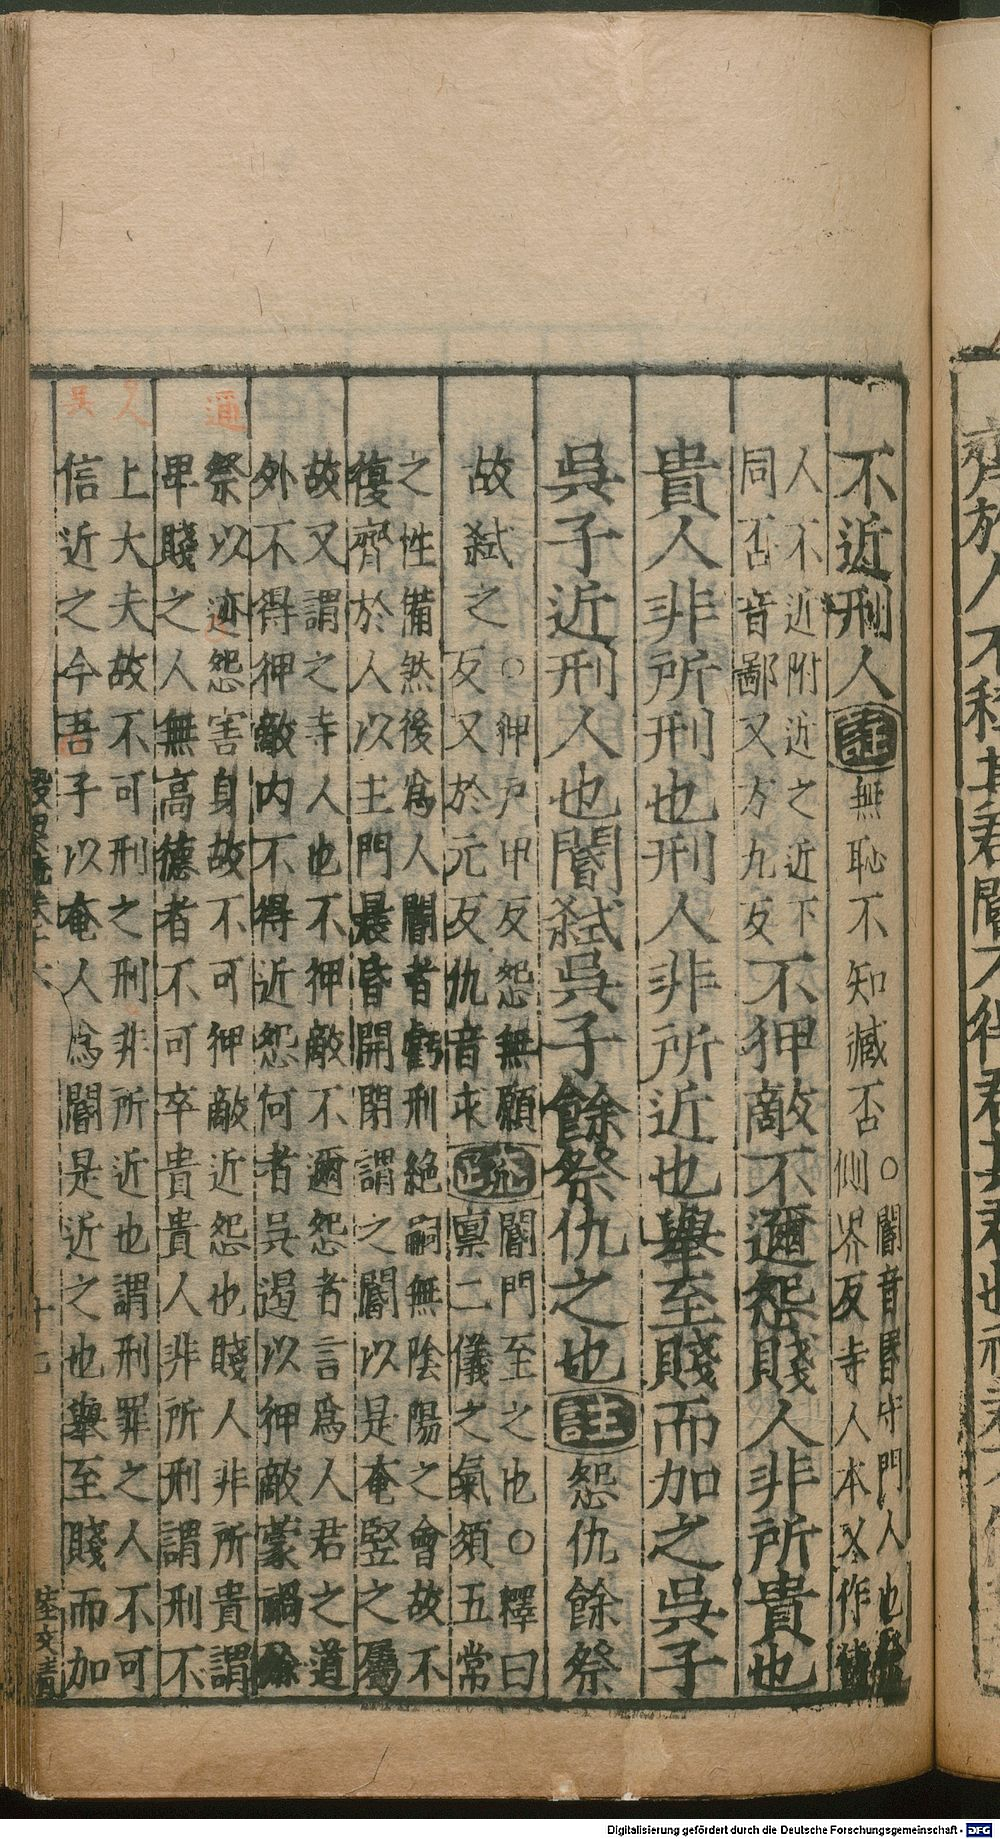 不近刑人註無恥不知臧否○閽音昏守門人也
側界反寺人本又作
人不近附近之近下
同否音鄙又方九反不狎敵不邇怨賤人非所貴也
貴人非所刑也刑人非所近也舉至賤而加之吳子
吳子近刑人也閽弒吳子餘祭仇之也註怨仇餘祭
故弒之○狎戶甲反怨無願
反又於元反仇音求疏閽門至之也○釋曰
稟二儀之氣須五常
之性備然後為人閽者虧刑絕嗣無陰陽之會故不
復齊於人以主門晨昏開閉謂之閽以是奄豎之屬
故又謂之寺人也不狎敵不邇怨者言為人君之道
外不得狎敵內不得近怨何者吳遏以狎敵蒙禍餘
祭以邇怨害身故不可狎敵近怨也賤人非所貴謂
卑賤之人無高德者不可卒貴貴人非所刑謂刑不
上大夫故不可刑之刑非所近也謂刑罪之人不可
信近之今吾子以奄人為閽是近之也舉至賤而加
通
人
吳
穀梁疏卷十六
十七
Digitalisierung gefördert durch die Deutsche Forschungsgemeinschaft - DFG